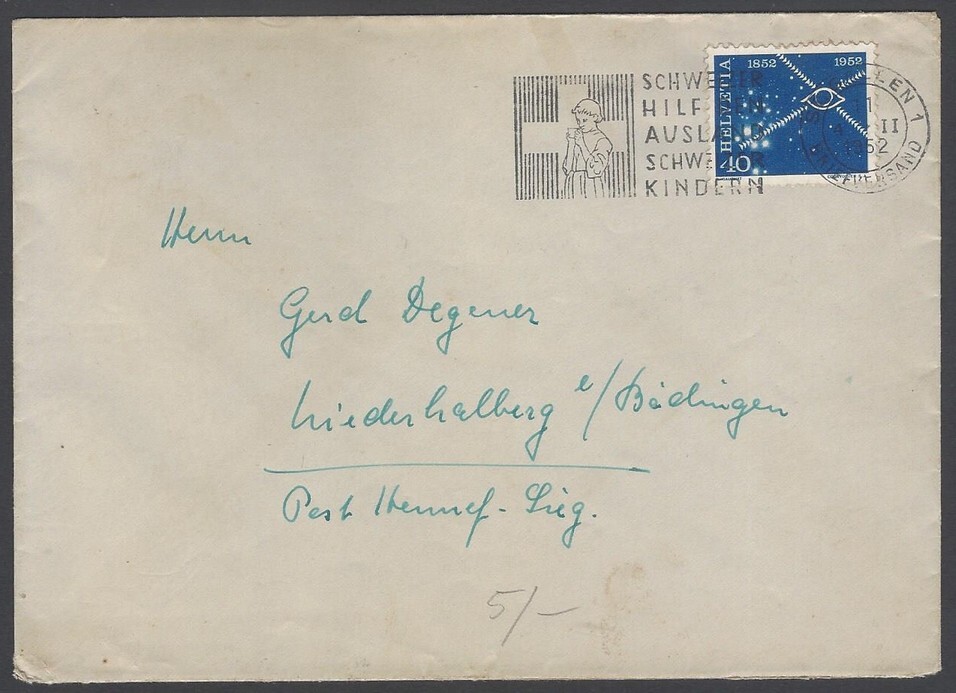 SCHWEIZER
HILF DEN
AUSLAND
SCHWEIZER
KINDERN
HELVETIA
1852 1952
40
GALLEN 1
11
II
1952
BRIEFVERSAND
Herrn
Gerd Degener
Niederhalberg b/Bödingen
Post Hennef-Sieg.
5/-